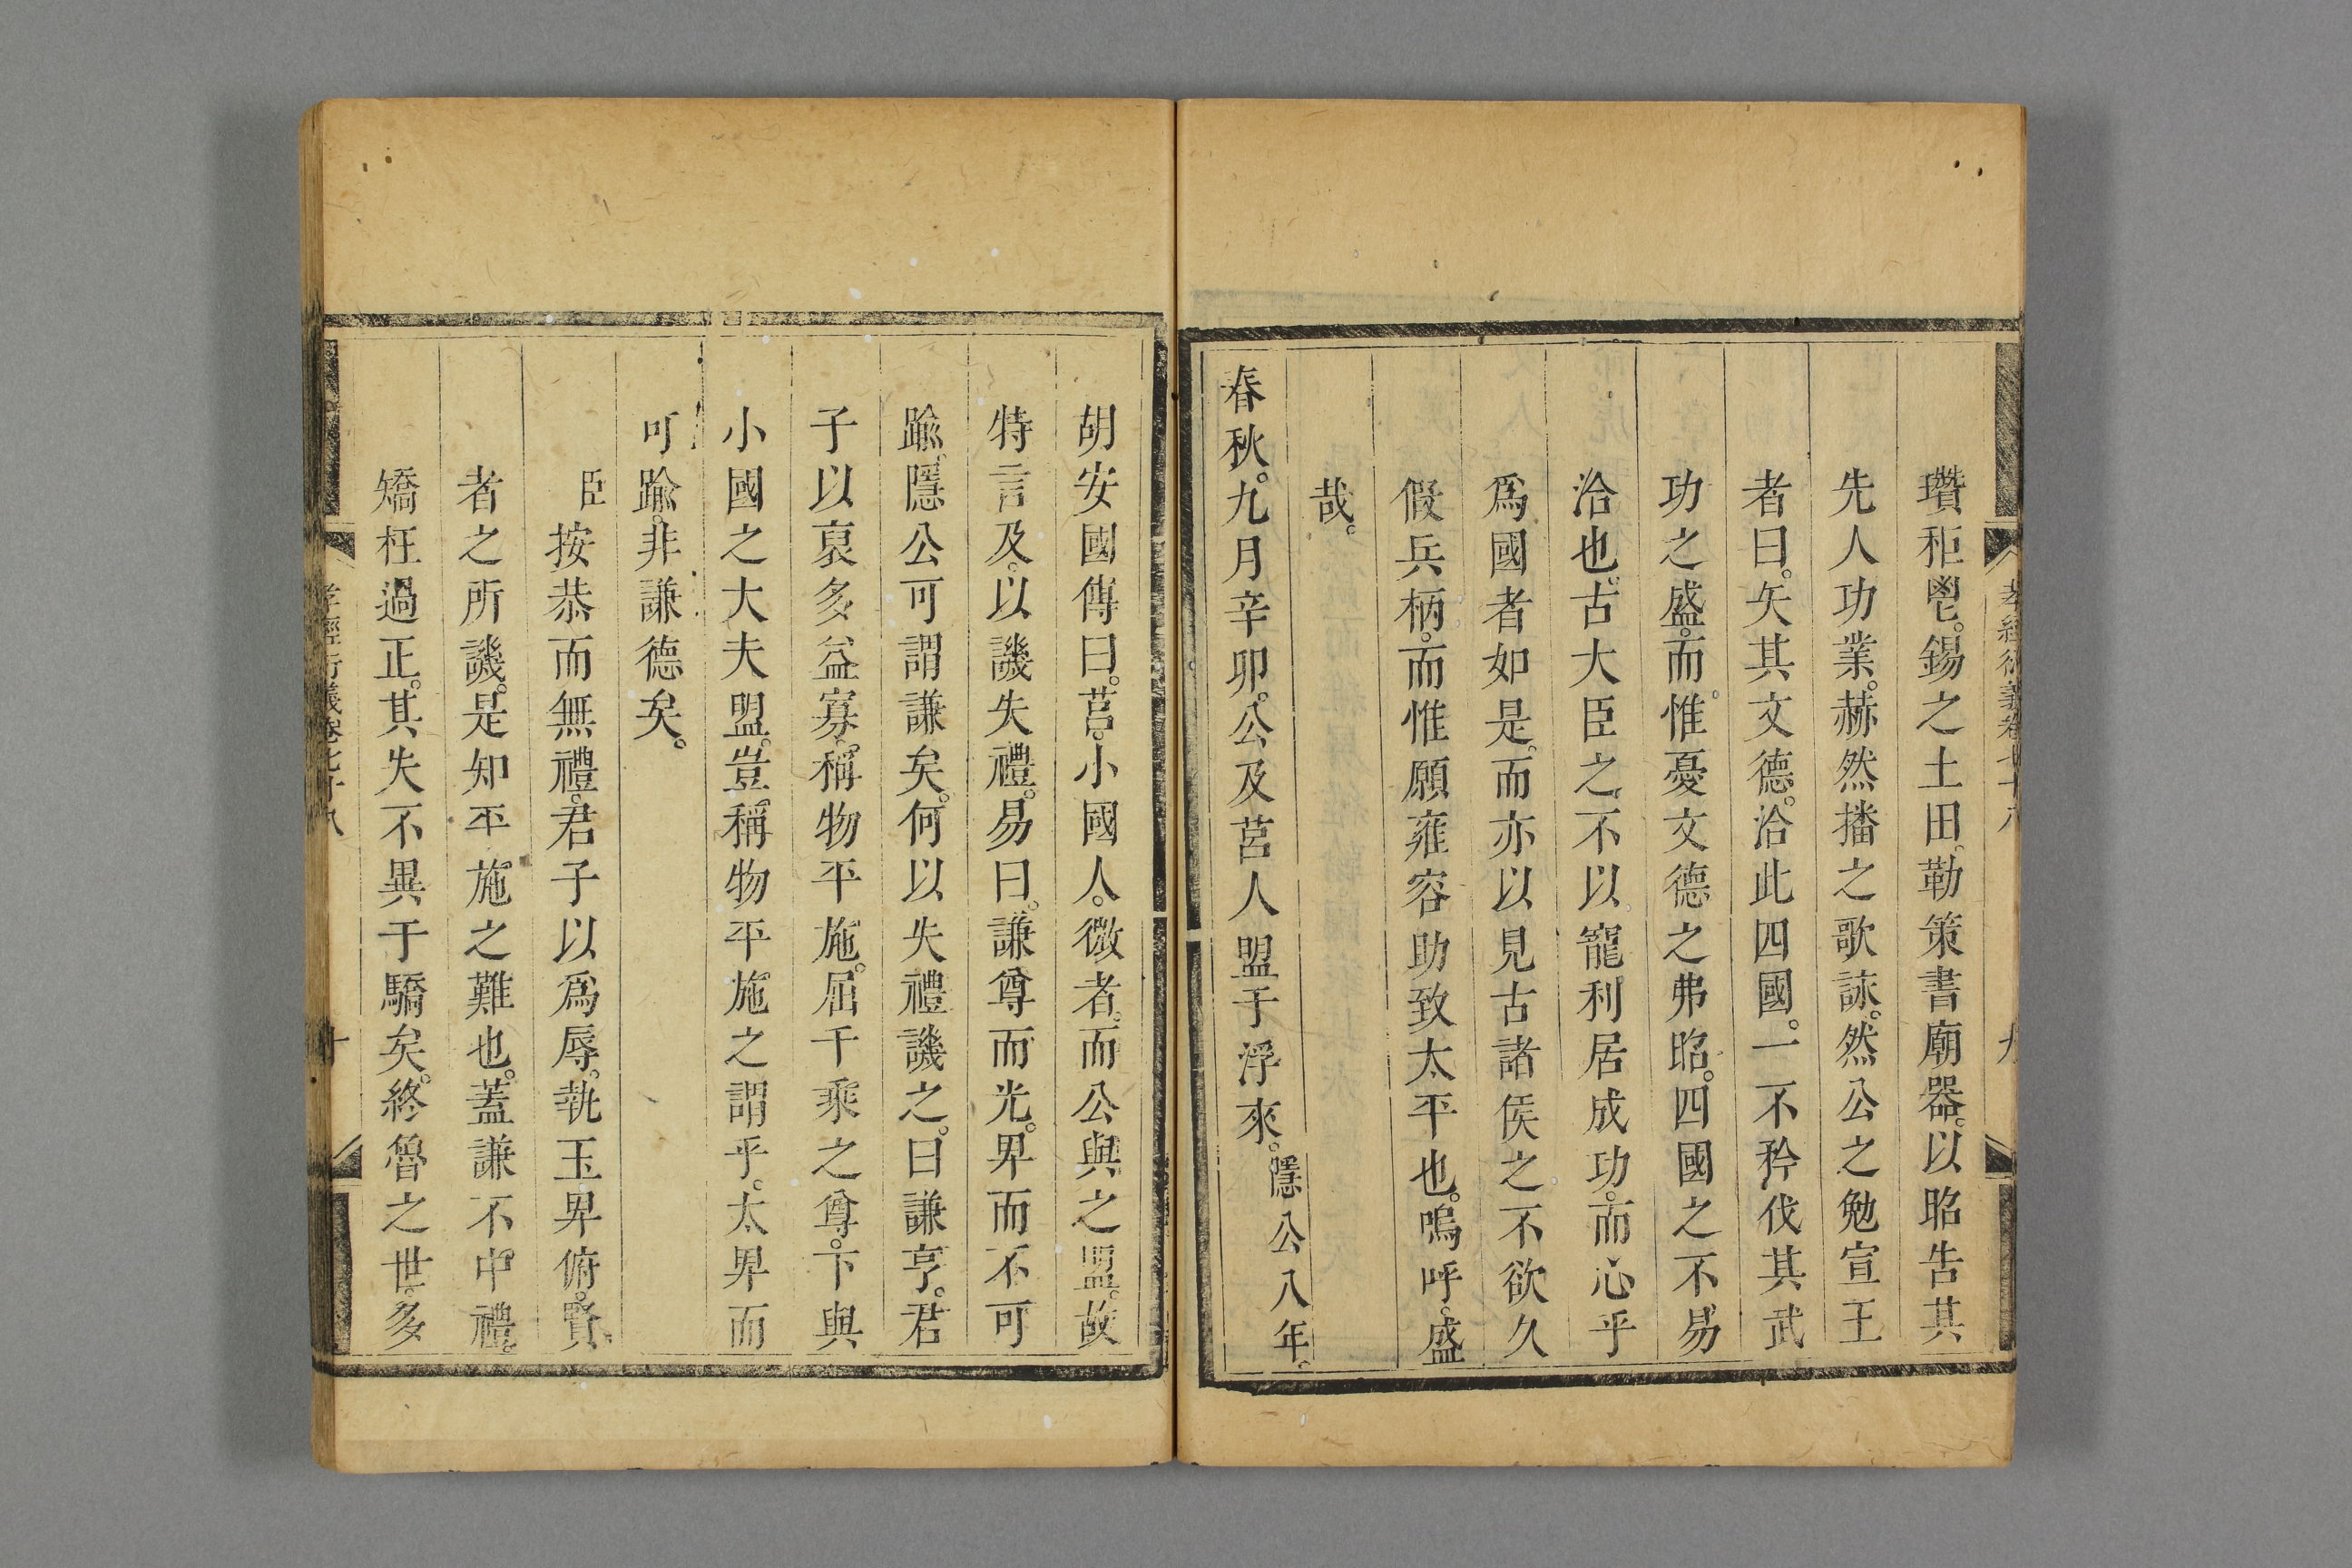 孝經衍義卷七十八
九
瓚秬鬯。錫之土田。勒策書廟器。以昭告其
先人功業。赫然播之歌詠。然公之勉宣王
者曰。矢其文德。洽此四國。一不矜伐其武
功之盛。而惟憂文德之弗昭。四國之不易
洽也。古大臣之不以寵利居成功。而心乎
爲國者如是。而亦以見古諸侯之不欲久
假兵柄。而惟願雍容助致太平也。嗚呼。盛
哉。
春秋。九月辛卯。公及莒人盟于浮來。隱公八年。
胡安國傳曰。莒。小國人。微者。而公與之盟。故
特言及。以譏失禮。易曰。謙尊而光。卑而不可
踰。隱公可謂謙矣。何以失禮譏之。曰謙亨。君
子以裒多益寡。稱物平施。屈千乘之尊。下與
小國之大夫盟。豈稱物平施之謂乎。太卑而
可踰。非謙德矣。
臣按恭而無禮。君子以爲辱。執玉卑俯。賢
者之所譏。是知平施之難也。蓋謙不中禮。
矯枉過正。其失不異于驕矣。終魯之世。多
孝經衍義卷七十八
十